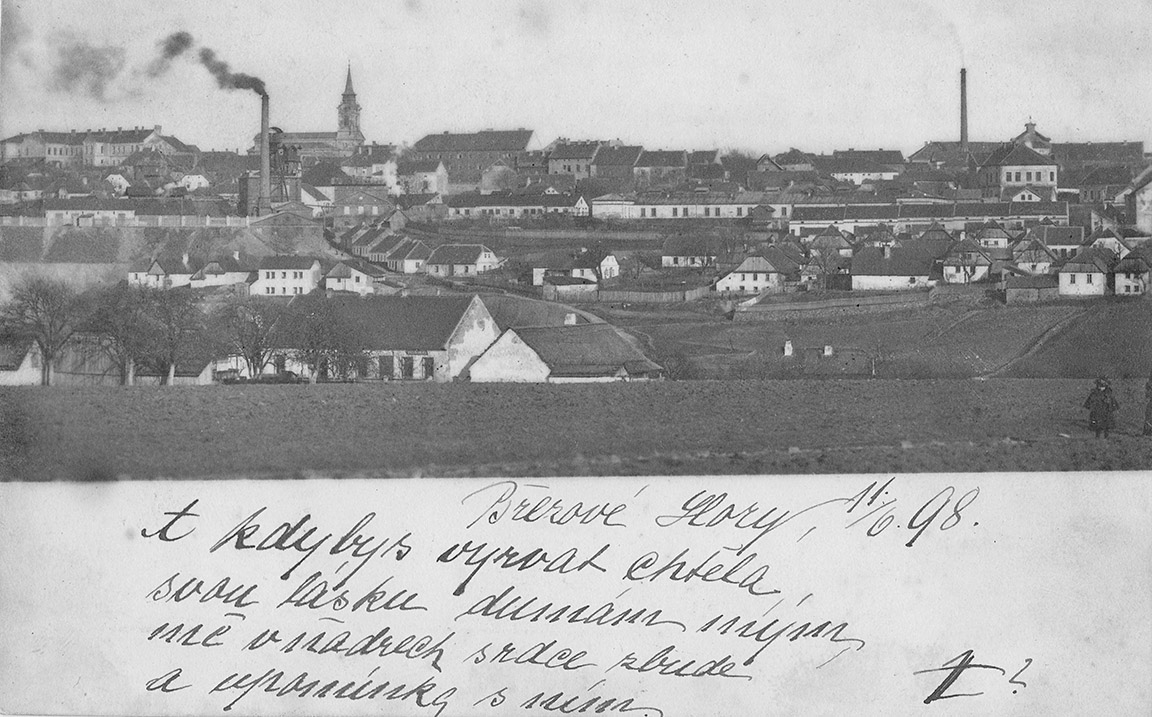 Březové Hory, 11./6. 98.
A kdybys vyrvat chtěla
svou lásku dumám mým,
mě v ňadrech srdce zbude
a upomínka s ním.
II ?